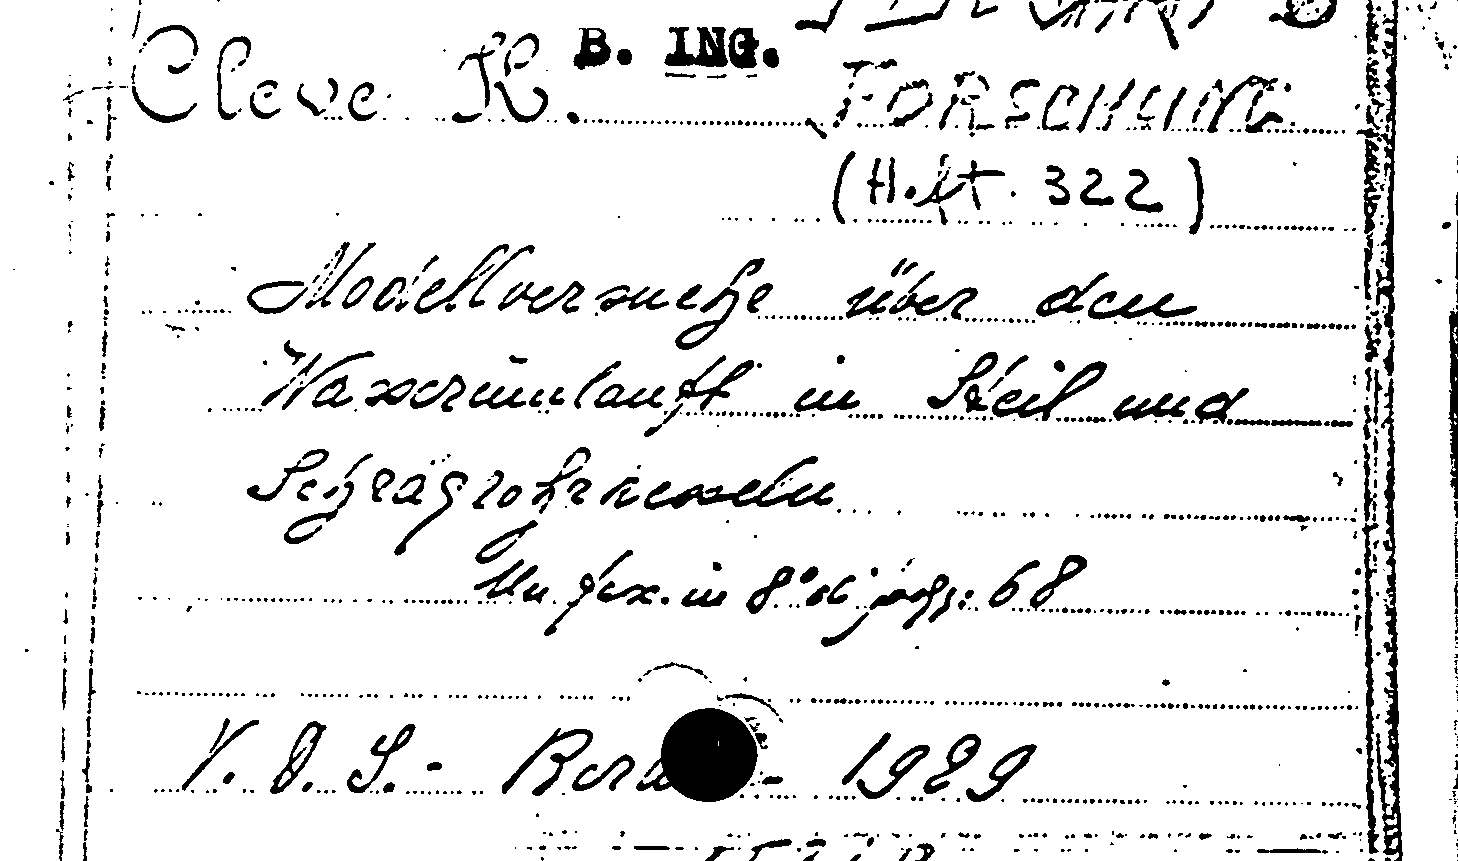 Cleve K. B. ING.
FORSCHUNG
(Heft. 322)
Modellversuche über den
Wasserumlauft in Steil und
Schragrohrkesseln
Un fex. in 8° di pagg: 68
V. D. I. - - 1929